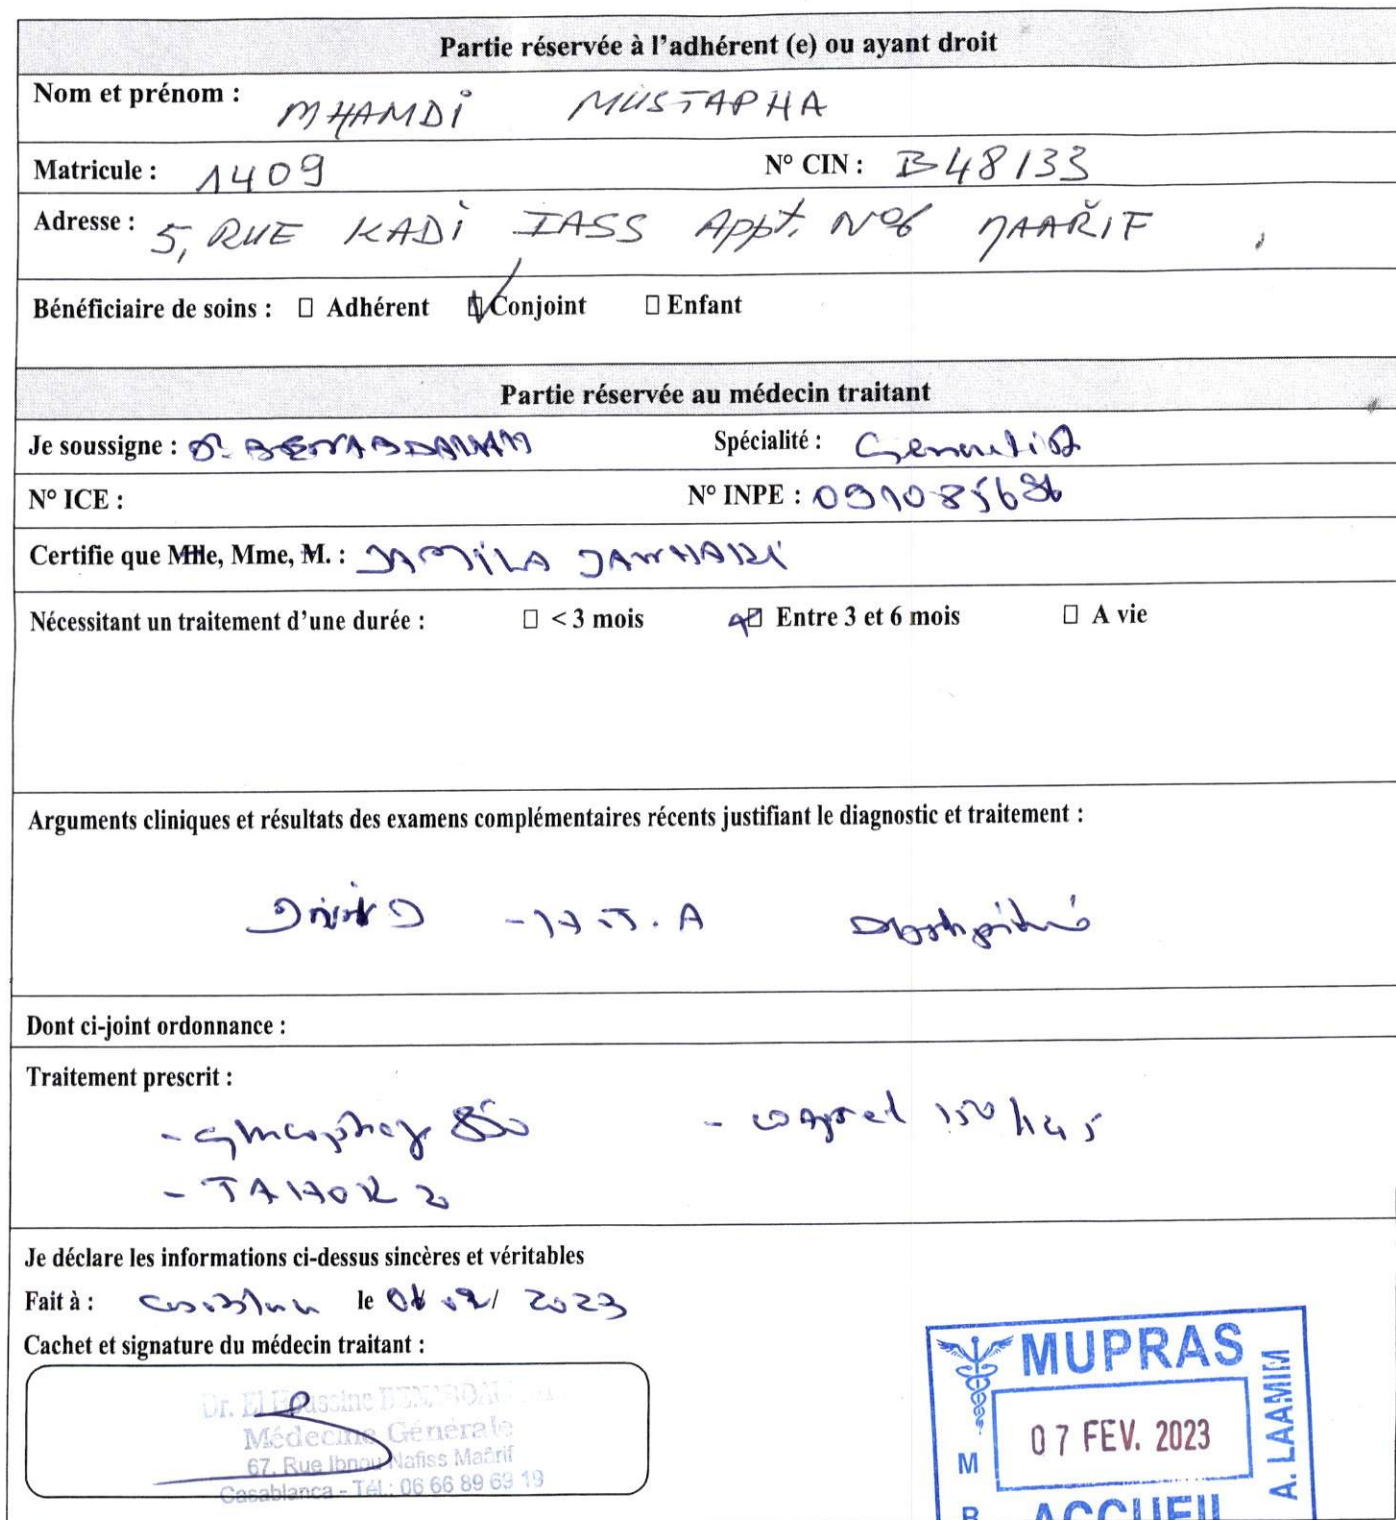 Partie réservée à l'adhérent (e) ou ayant droit
Nom et prénom : MHAMDi MUSTAPHA
Matricule : 1409 N° CIN : B48133
Adresse : 5, RUE KADi IASS Appt. N°6 MAARIF
Bénéficiaire de soins : ☐ Adhérent ☑ Conjoint ☐ Enfant
Partie réservée au médecin traitant
Je soussigne : Dr BENABDALLAH Spécialité :
N° ICE : N° INPE :
Certifie que Mlle, Mme, M. : JAMiLA JAWHARI
Nécessitant un traitement d'une durée : ☐ < 3 mois ☑ Entre 3 et 6 mois ☐ A vie
Arguments cliniques et résultats des examens complémentaires récents justifiant le diagnostic et traitement :
- H.T.A
Dont ci-joint ordonnance :
Traitement prescrit :
- Glucophage 850 - coaprovel
- TAHOR 20
Je déclare les informations ci-dessus sincères et véritables
Fait à : Casablanca le 2023
Cachet et signature du médecin traitant :
Dr. El Houssine
Médecine Générale
67, Rue Ibnou Nafiss Maârif
Casablanca - Tél.: 06 66 89 69 19
MUPRAS
07 FEV. 2023
A. LAAMIM
M
R
ACCUEIL